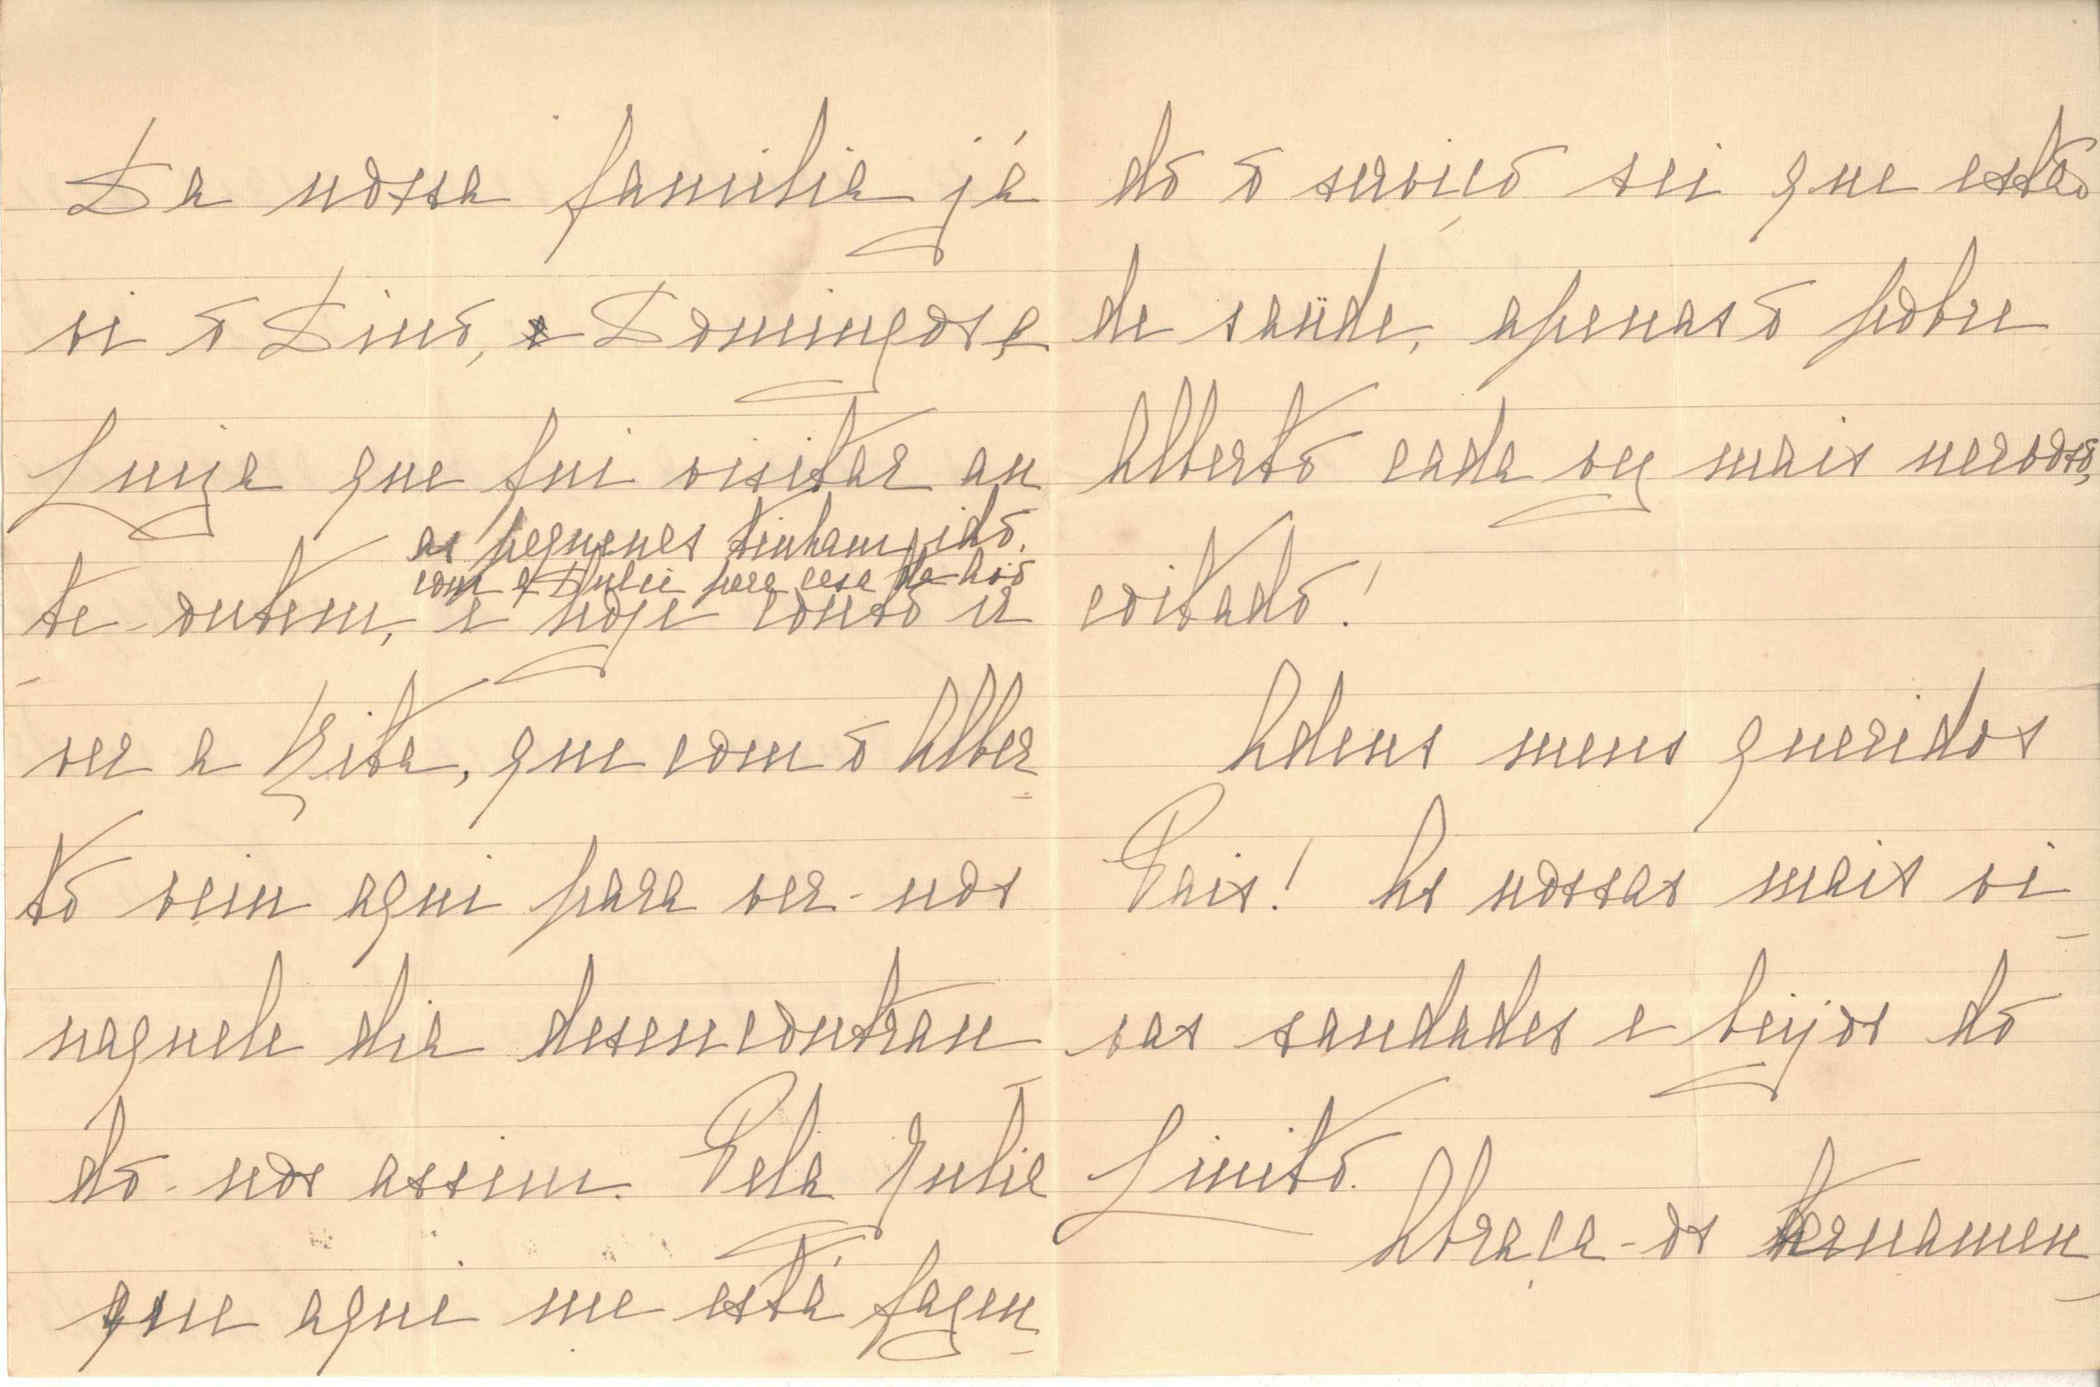 Da nossa familia já
vi o Dino, o Domingos e
Luiza que fui visitar an
te-ontem, e hoje conto ir
as pequenas tinham ido
com a Julia para casa da
ver a Zita, que com o Alber
to veiu aqui para ver-nos
naquele dia desencontran
do-nos assim. Pela Julia
que aqui me está fazen
do o serviço sei que estão
de saúde, apenas o pobre
Alberto cada vez mais nervoso,
coitado!
Adeus meus queridos
Pais! As nossas mais vi
vas saudades e beijos do
Linito.
Abraça-os ternamen